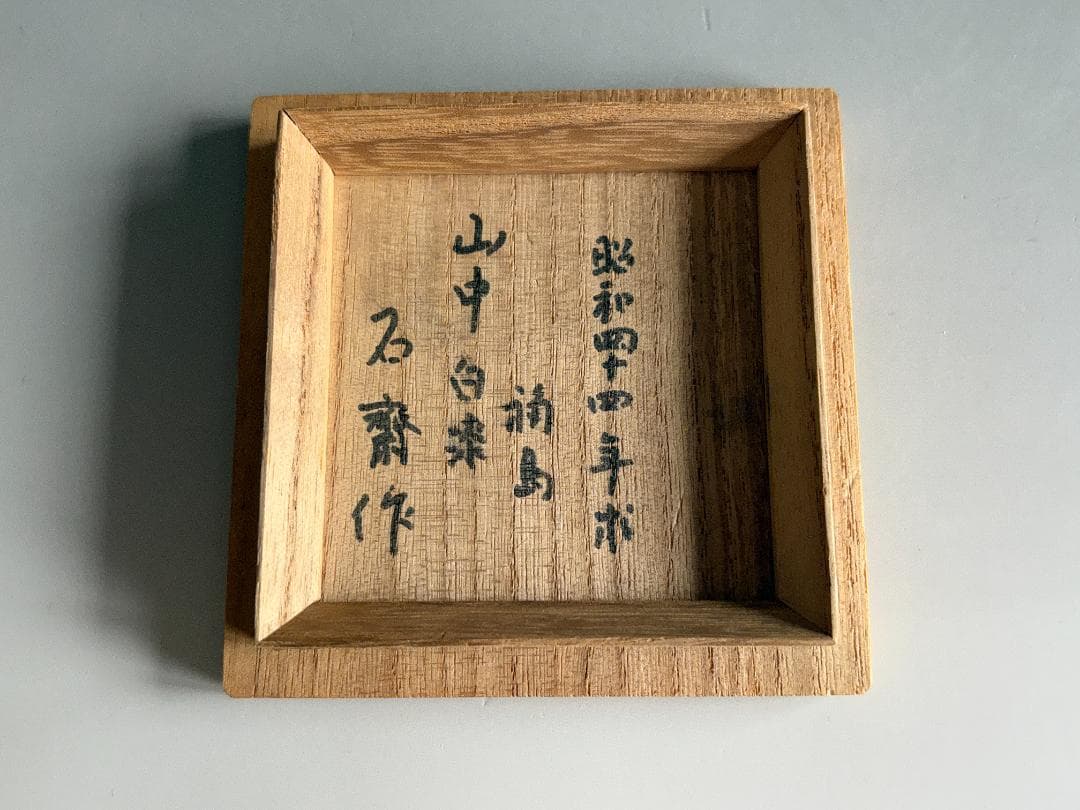 昭和四十四年求
福島
山中白漆
石齋作